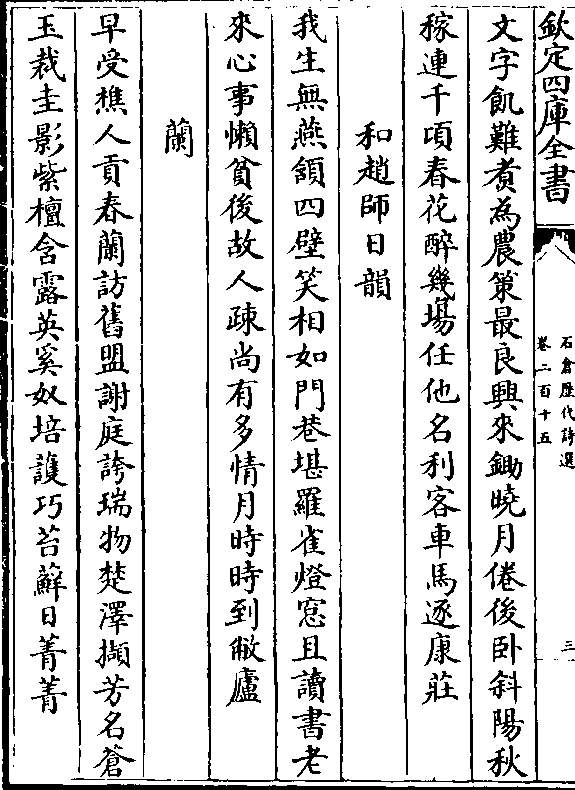 欽定四庫全書
石倉歴代詩選
卷二百十五
三
文字飢難煑為農策最良興來鋤曉月倦後卧斜陽秋
稼連千頃春花醉幾場任他名利客車馬逐康莊
和趙師日韻
我生無燕頷四壁笑相如門巷堪羅雀燈窓且讀書老
來心事懶貧後故人疎尚有多情月時時到敝廬
蘭
早受樵人貢春蘭訪舊盟謝庭誇瑞物楚澤擷芳名蒼
玉裁圭影紫檀含露英奚奴培護巧苔蘚日菁菁